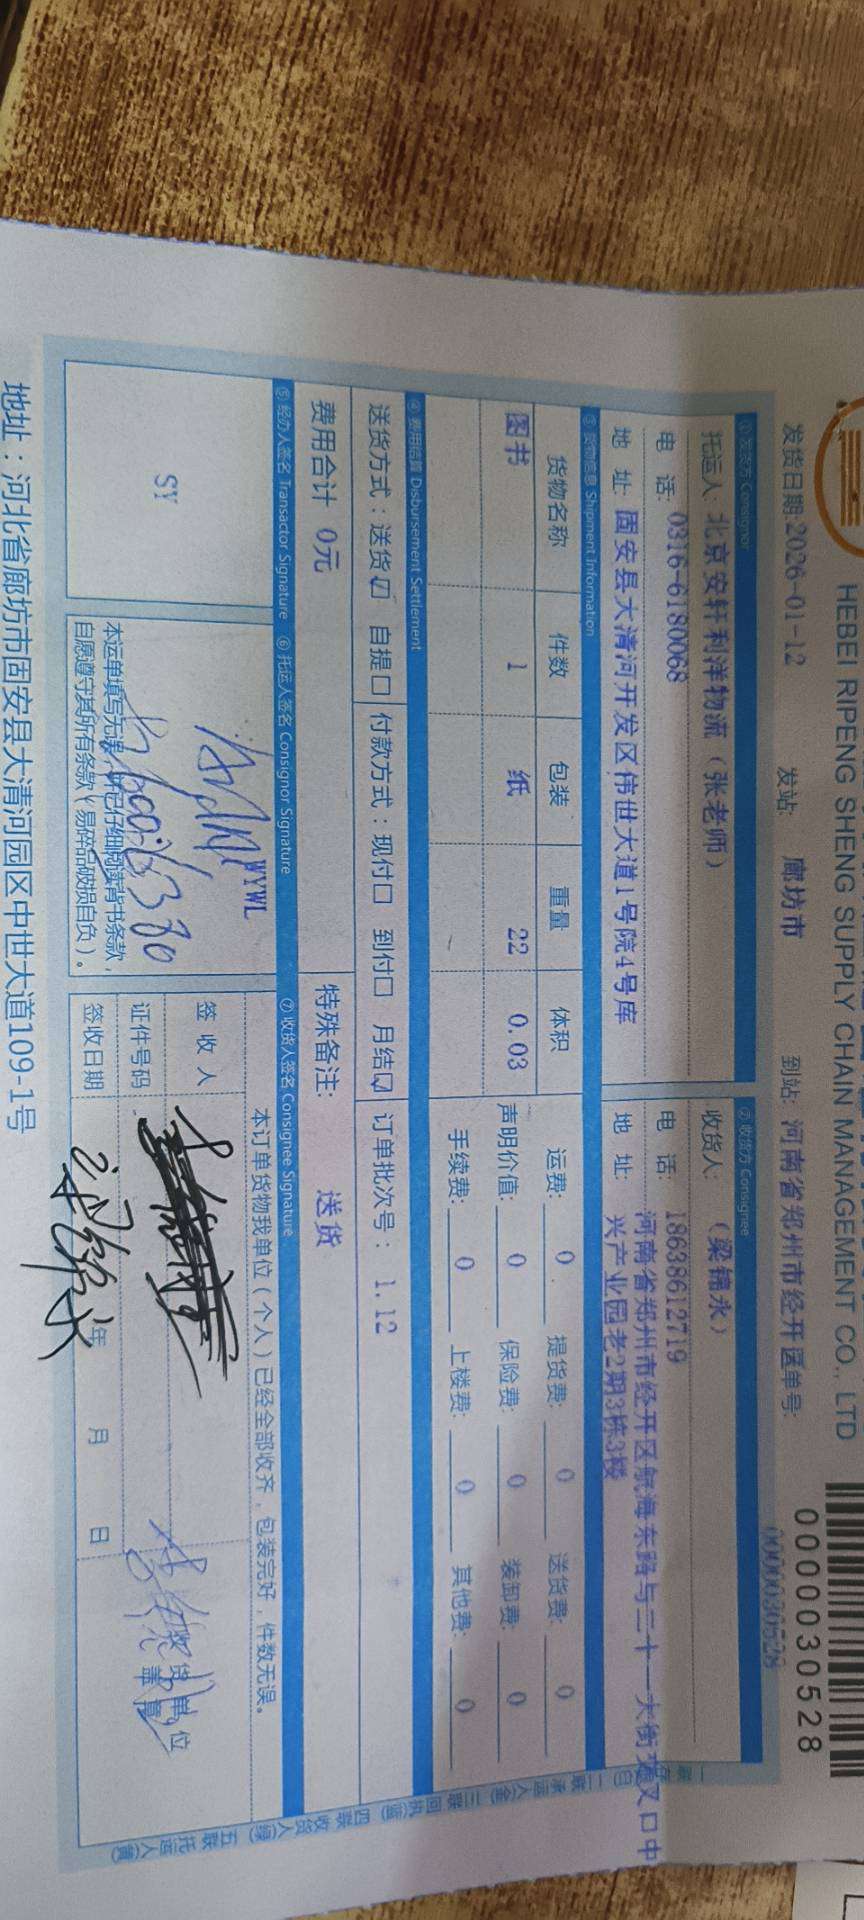 HEBEI RIPENG SHENG SUPPLY CHAIN MANAGEMENT CO., LTD
0000030528
发货日期:2026-01-12 发站: 廊坊市 到站: 河南省郑州市经开区 单号: 0000030528
①发货方 Consignor ②收货方 Consignee
托运人: 北京安轩利洋物流（张老师） 收货人: （梁锦永）
电 话: 0316-6180068 电 话: 18638612719
地 址: 固安县大清河开发区伟世大道1号院4号库 地 址: 河南省郑州市经开区航海东路与二十一大街交叉口中
兴产业园老2期3栋3楼
③货物信息 Shipment Information
货物名称 件数 包装 重量 体积 运费: 0 提货费: 0 送货费: 0
图书 1 纸 22 0.03 声明价值: 0 保险费: 0 装卸费: 0
手续费: 0 上楼费: 0 其他费: 0
④费用结算 Disbursement Settlement
送货方式：送货☑ 自提□ 付款方式：现付□ 到付□ 月结☑ 订单批次号：1.12
费用合计 0元 特殊备注: 送货
⑤经办人签名 Transactor Signature ⑥托运人签名 Consignor Signature ⑦收货人签名 Consignee Signature
SY
WYWL
本订单货物我单位(个人)已经全部收齐，包装完好，件数无误。
签 收 人
收货单位
盖章
证件号码
本运单填写无误，并已仔细阅读背书条款，
自愿遵守其所有条款（易碎品破损自负）。
签收日期 年 月 日
地址：河北省廊坊市固安县大清河园区中世大道109-1号